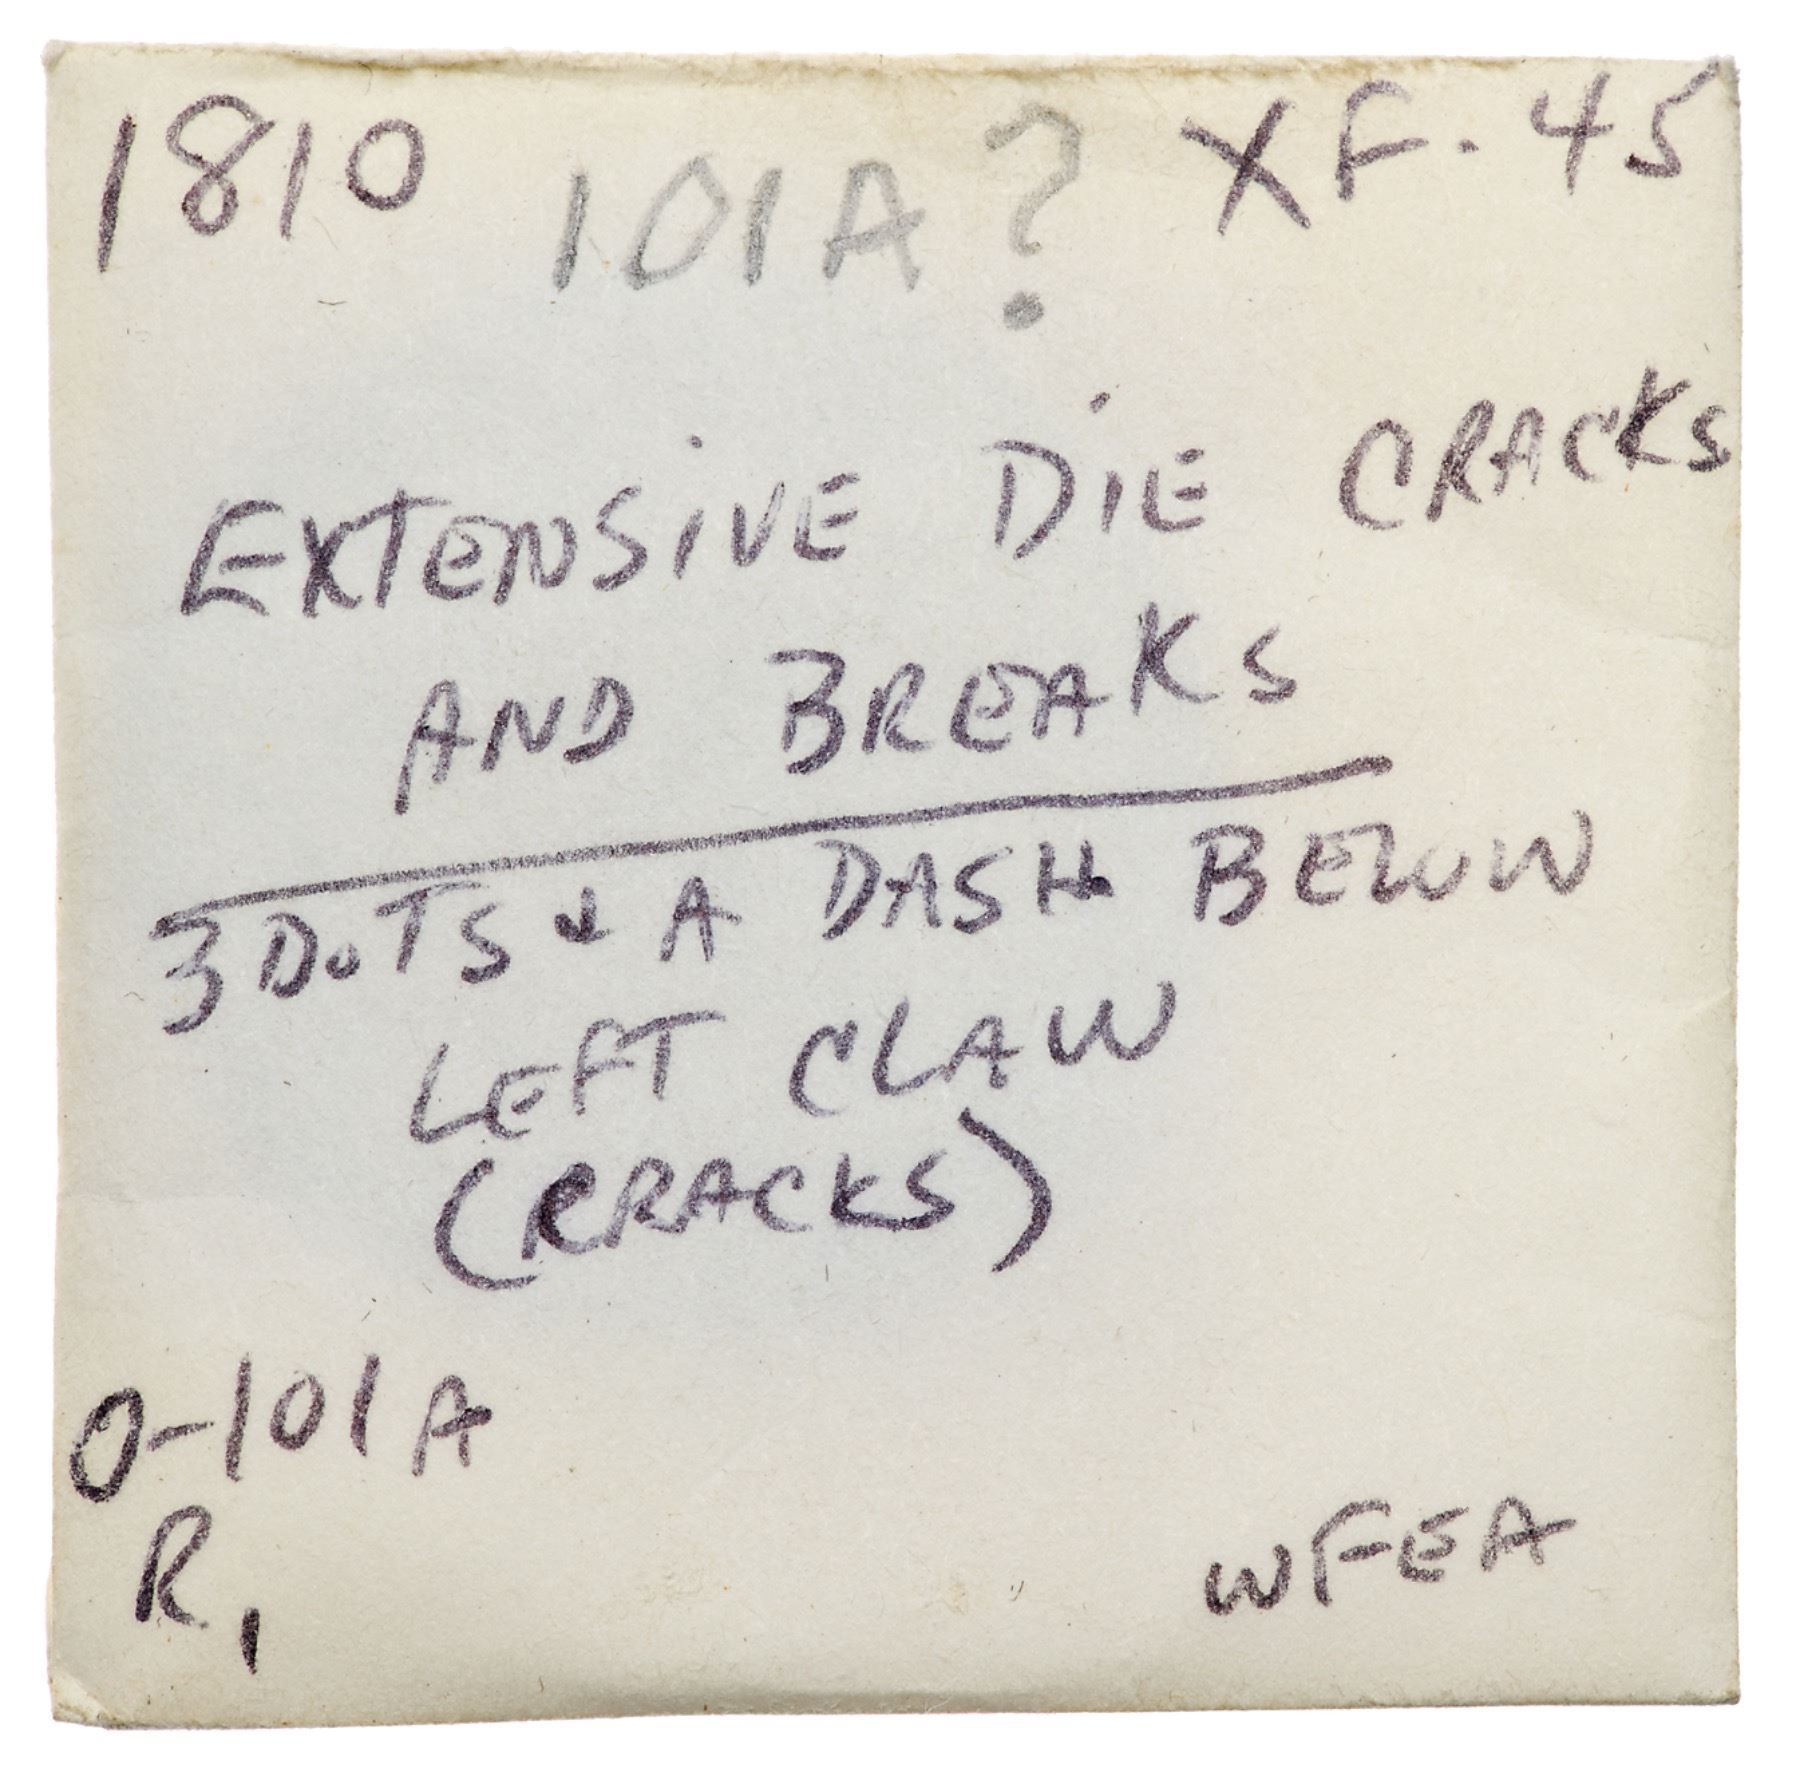 1810 101A? XF-45
EXTENSIVE DIE CRACKS
AND BREAKS
3 DOTS & A DASH BELOW
LEFT CLAW
(CRACKS)
O-101A
R1
WFEA